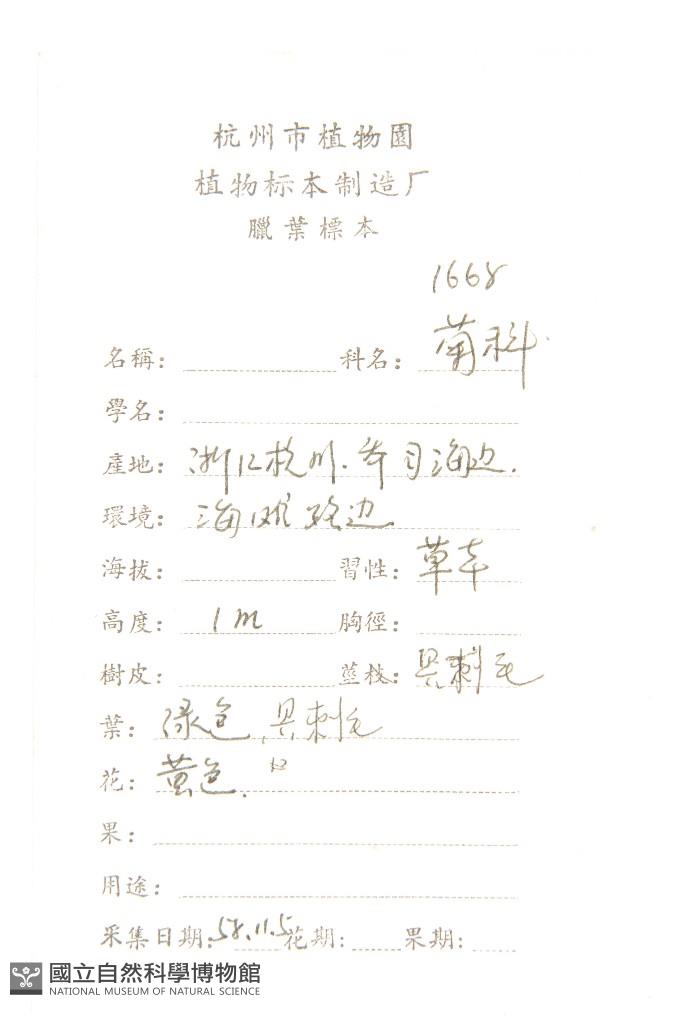 杭州市植物園
植物标本制造厂
臘葉標本
1668
名稱： 科名： 菊科
學名：
產地： 浙江杭州. 海边.
環境： 海滩 路边
海拔： 習性： 草本
高度： 1m 胸徑：
樹皮： 莖枝： 具刺毛
葉： 绿色, 具刺毛
花： 黄色.
果：
用途：
采集日期： 58.11.5 花期： 果期：
國立自然科學博物館
NATIONAL MUSEUM OF NATURAL SCIENCE